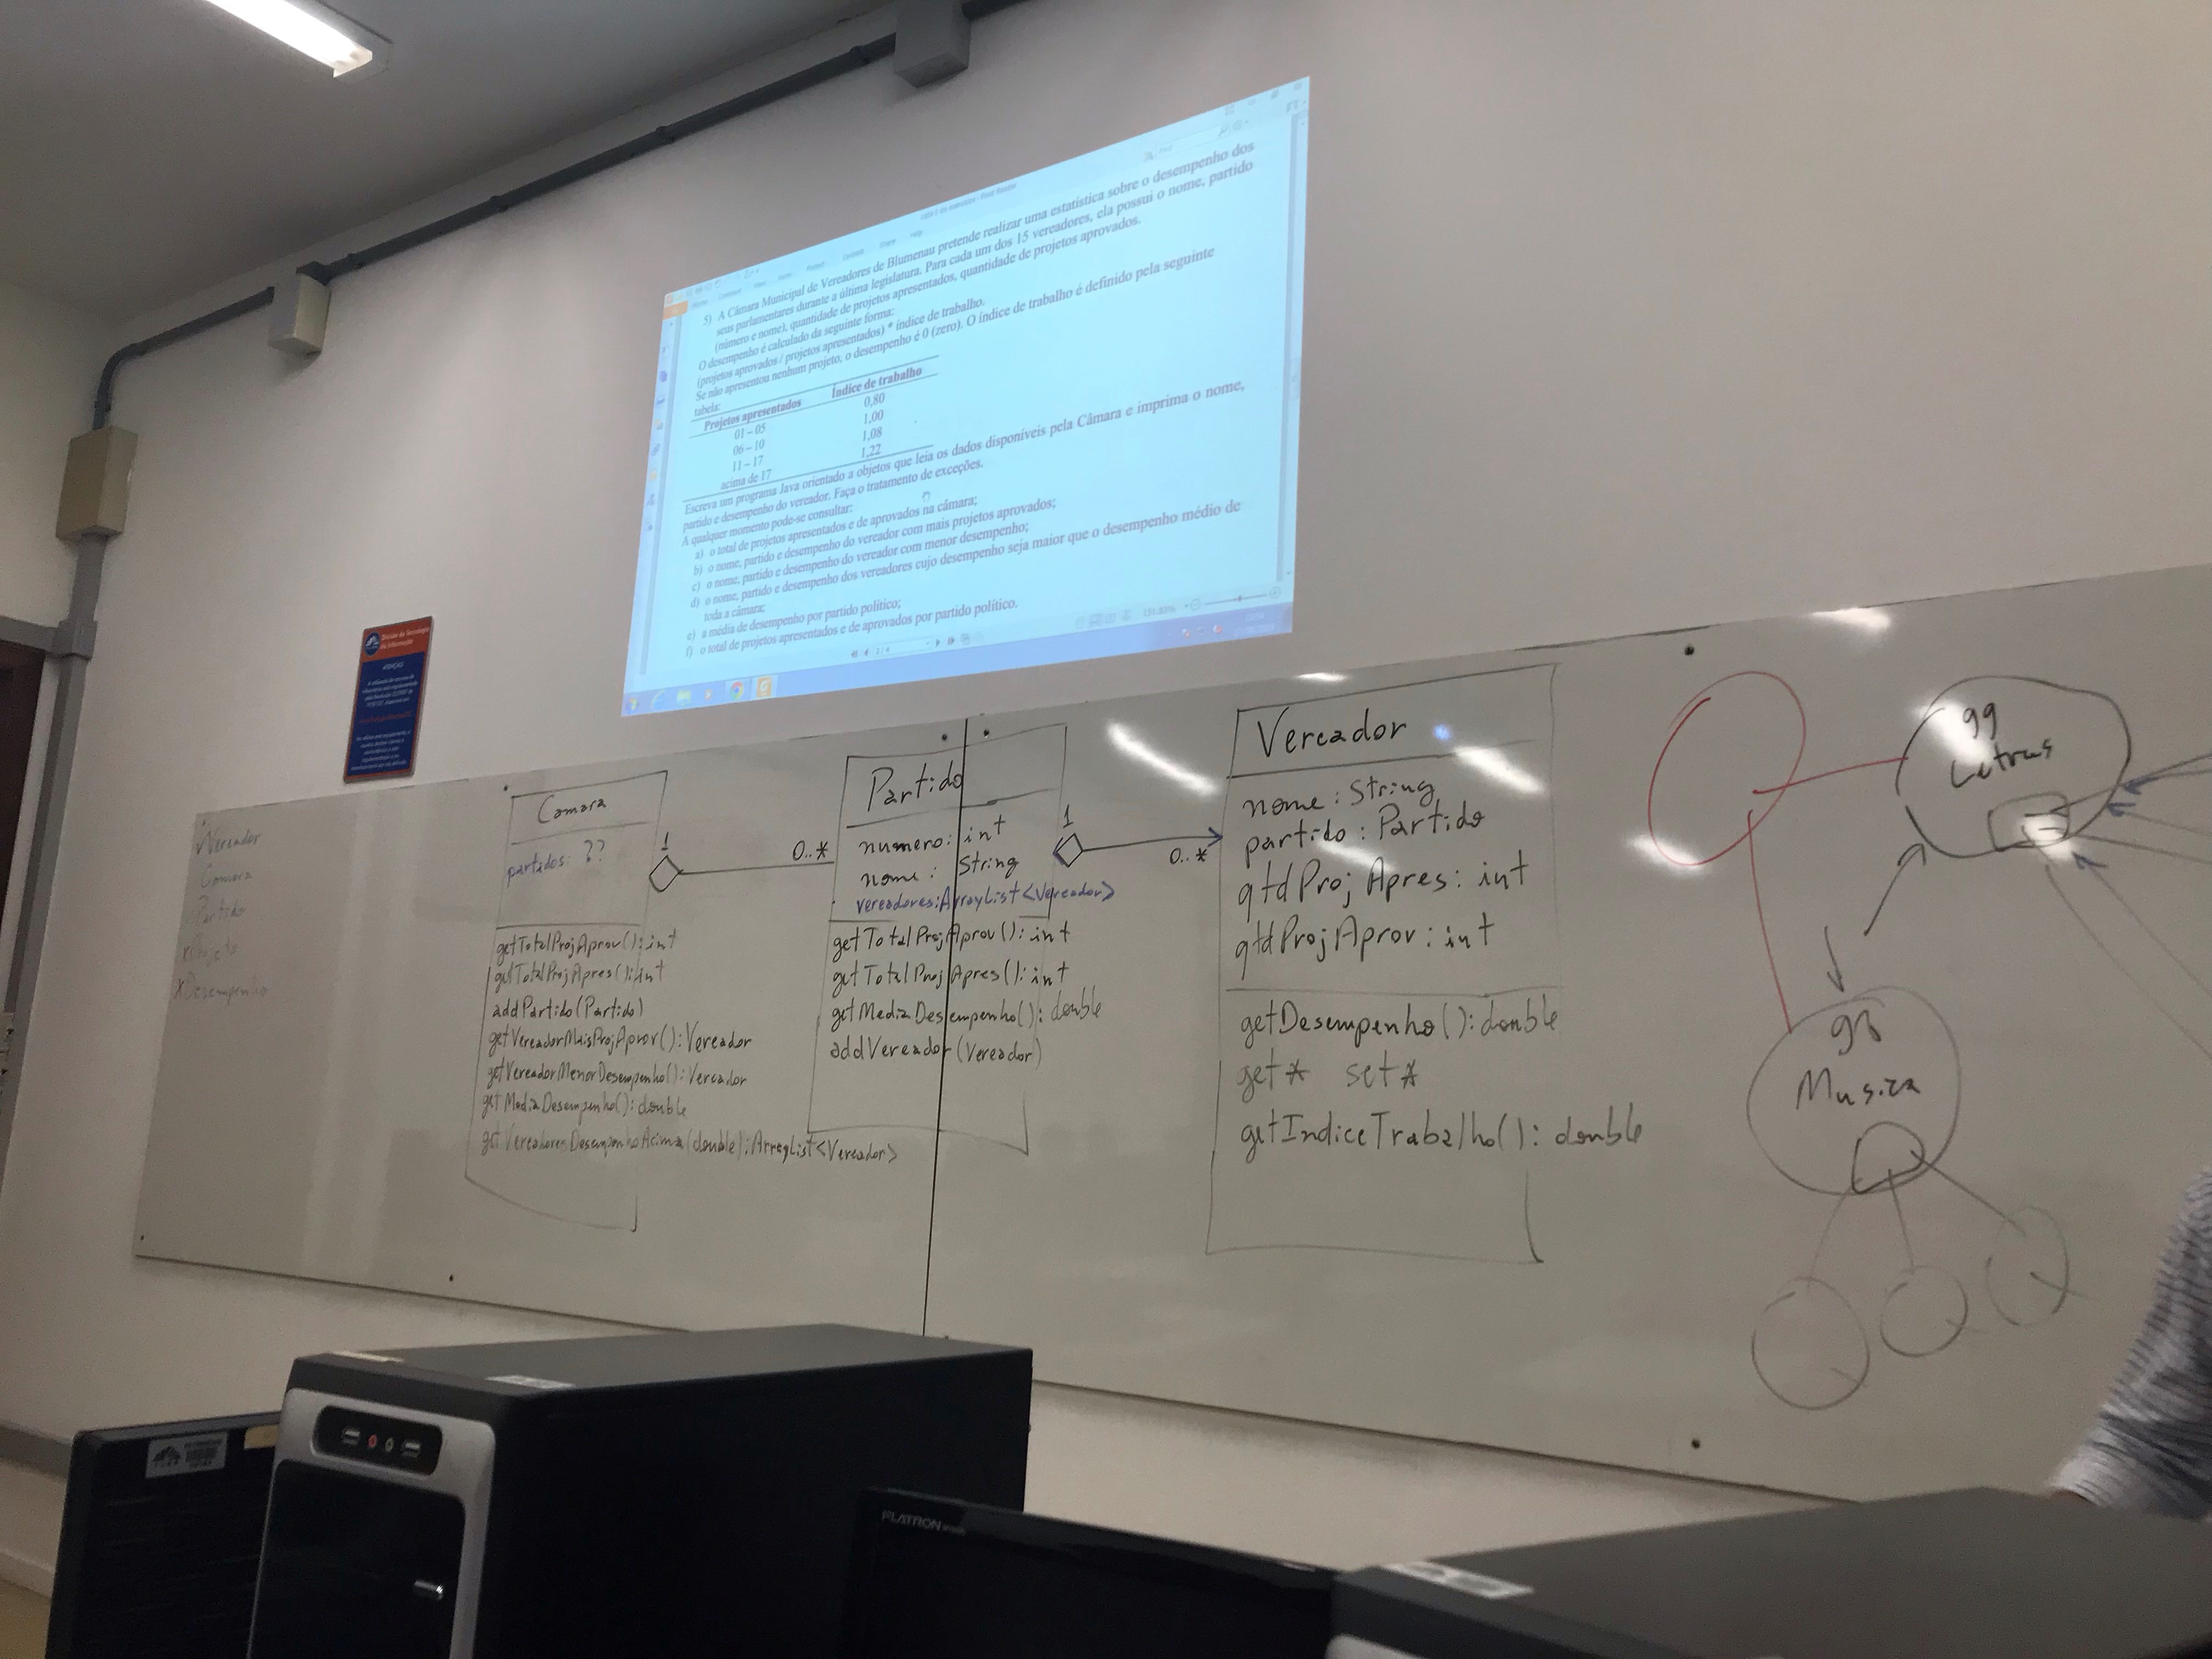 5) A Câmara Municipal de Vereadores de Blumenau pretende realizar uma estatística sobre o desempenho dos
seus parlamentares durante a última legislatura. Para cada um dos 15 vereadores, ela possui o nome, partido
(número e nome), quantidade de projetos apresentados, quantidade de projetos aprovados.
O desempenho é calculado da seguinte forma:
(projetos aprovados / projetos apresentados) * índice de trabalho.
Se não apresentou nenhum projeto, o desempenho é 0 (zero). O índice de trabalho é definido pela seguinte
tabela:
Projetos apresentados Índice de trabalho
01 – 05 0,80
06 – 10 1,00
11 – 17 1,08
acima de 17 1,22
Escreva um programa Java orientado a objetos que leia os dados disponíveis pela Câmara e imprima o nome,
partido e desempenho do vereador. Faça o tratamento de exceções.
A qualquer momento pode-se consultar:
a) o total de projetos apresentados e de aprovados na câmara;
b) o nome, partido e desempenho do vereador com mais projetos aprovados;
c) o nome, partido e desempenho do vereador com menor desempenho;
d) o nome, partido e desempenho dos vereadores cujo desempenho seja maior que o desempenho médio de
toda a câmara;
e) a média de desempenho por partido político;
f) o total de projetos apresentados e de aprovados por partido político.
Divisão de Tecnologia
de Informação
ATENÇÃO
Vereador
Camara
Partido
xProjeto
xDesempenho
Camara
partidos: ??
getTotalProjAprov(): int
getTotalProjApres(): int
addPartido(Partido)
getVereadorMaisProjAprov(): Vereador
getVereadorMenorDesempenho(): Vereador
getMediaDesempenho(): double
getVereadoresDesempenhoAcima(double): ArrayList<Vereador>
1
0..*
Partido
numero: int
nome: String
vereadores: ArrayList<Vereador>
getTotalProjAprov(): int
getTotalProjApres(): int
getMediaDesempenho(): double
addVereador(Vereador)
1
0..*
Vereador
nome: String
partido: Partido
qtdProjApres: int
qtdProjAprov: int
getDesempenho(): double
get* set*
getIndiceTrabalho(): double
99
Letras
98
Musica
FLATRON